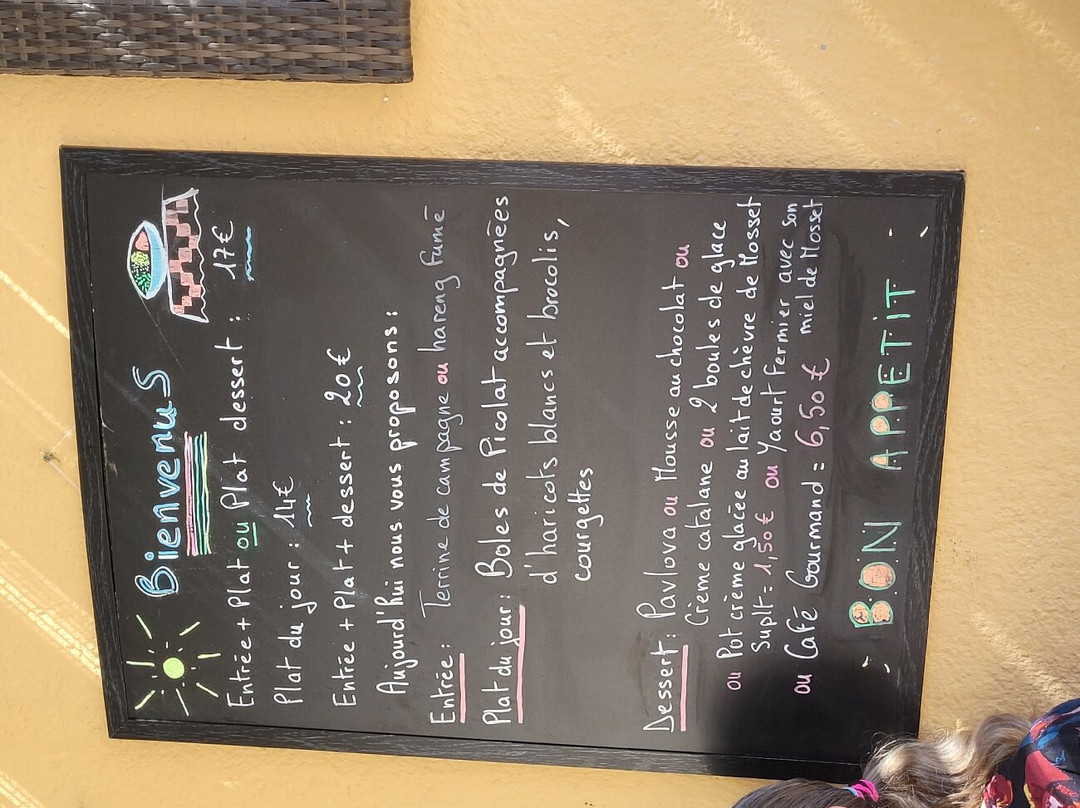 BienvenuS
Entrée + Plat ou Plat dessert : 17€
Plat du jour : 14€
Entrée + Plat + dessert : 20€
Aujourd'hui nous vous proposons :
Entrée : Terrine de campagne ou hareng fumé
Plat du jour : Boles de Picolat accompagnées
d'haricots blancs et brocolis,
courgettes
Dessert : Pavlova ou Mousse au chocolat ou
Crème catalane ou 2 boules de glace
ou Pot crème glacée au lait de chèvre de Mosset
Suplt = 1,50€ ou Yaourt Fermier avec son
miel de Mosset
ou Café Gourmand = 6,50€
BON APPETiT